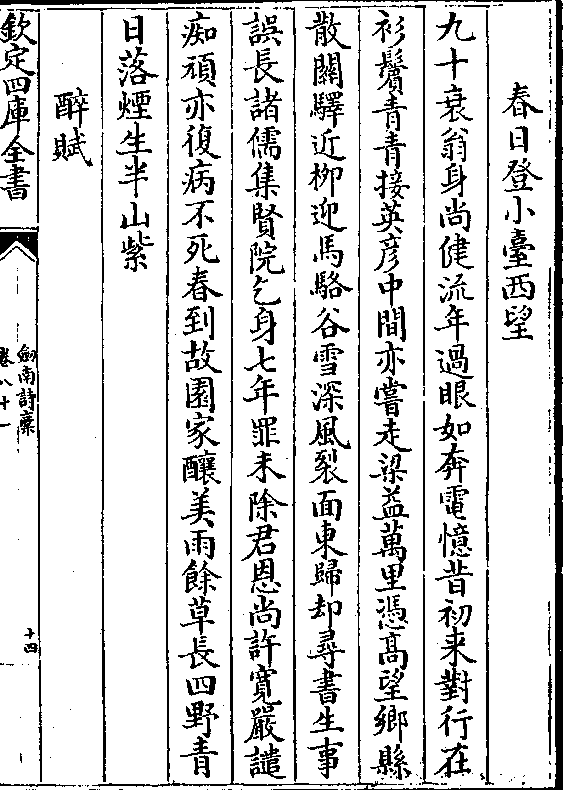 春日登小臺西望
九十衰翁身尚健流年過眼如奔電憶昔初来對行在
衫鬢青青接英彦中間亦嘗走梁益萬里憑髙望鄉縣
散闗驛近柳迎馬駱谷雪深風裂面東歸却尋書生事
誤長諸儒集賢院乞身七年罪未除君恩尚許寛嚴譴
痴頑亦復病不死春到故園家釀美雨餘草長四野青
日落煙生半山紫
醉賦
欽定四庫全書
劍南詩槀
卷八十一
十四